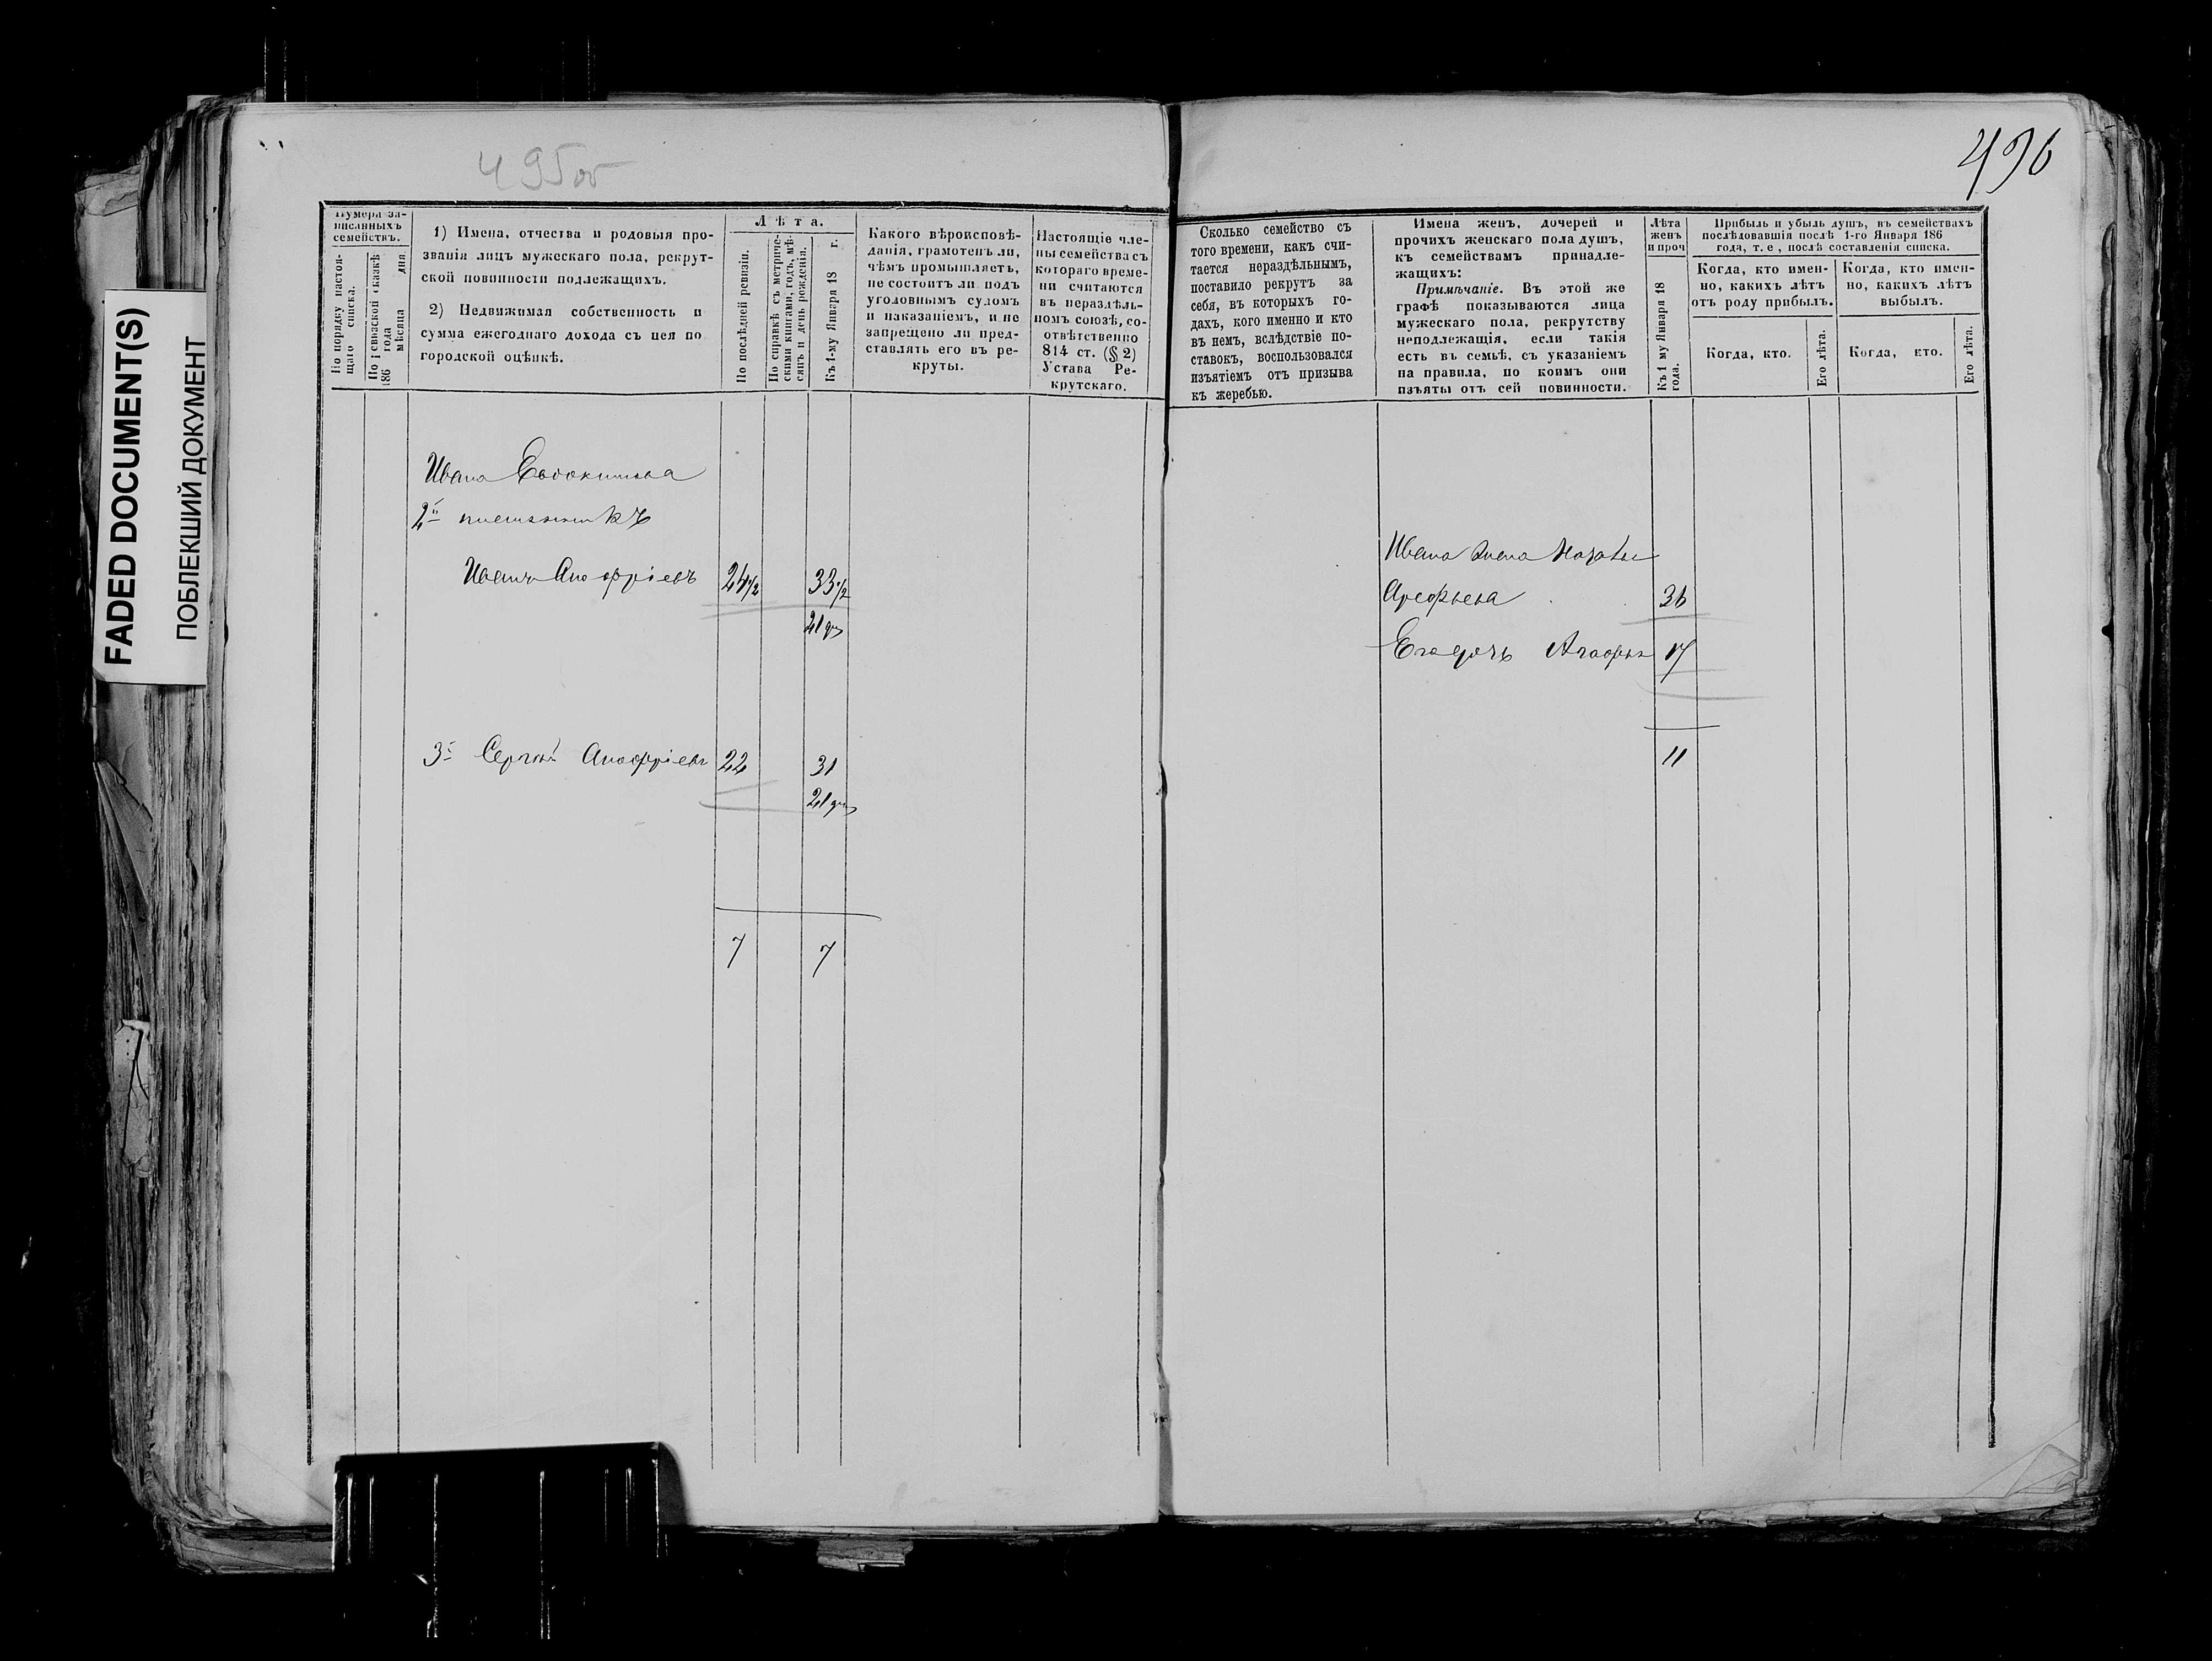 FADED DOCUMENT(S)
ПОБЛЕКШИЙ ДОКУМЕНТ
495об
496
Нумера за-
писанныхъ
семействъ.
По порядку настоя-
щаго списка.
По ревизской сказкѣ
186 года
мѣсяца дня.
1) Имена, отчества и родовыя про-
званія лицъ мужескаго пола, рекрут-
ской повинности подлежащихъ.
2) Недвижимая собственность и
сумма ежегоднаго дохода съ нея по
городской оцѣнкѣ.
Лѣта.
По послѣдней ревизіи.
По справкѣ съ метриче-
скими книгами, годъ, мѣ-
сяцъ и день рожденія.
Къ 1-му Января 18 г.
Какого вѣроисповѣ-
данія, грамотенъ ли,
чѣмъ промышляетъ,
не состоитъ ли подъ
уголовнымъ судомъ
и наказаніемъ, и не
запрещено ли пред-
ставлять его въ ре-
круты.
Настоящіе чле-
ны семейства съ
котораго време-
ни считаются
въ нераздѣль-
номъ союзѣ, со-
отвѣтственно
814 ст. (§ 2)
Устава Ре-
крутскаго.
Сколько семейство съ
того времени, какъ счи-
тается нераздѣльнымъ,
поставило рекрутъ за
себя, въ которыхъ го-
дахъ, кого именно и кто
въ немъ, вслѣдствіе по-
ставокъ, воспользовался
изъятіемъ отъ призыва
къ жеребью.
Имена женъ, дочерей и
прочихъ женскаго пола душъ,
къ семействамъ принадле-
жащихъ:
Примѣчаніе. Въ этой же
графѣ показываются лица
мужескаго пола, рекрутству
неподлежащія, если такія
есть въ семьѣ, съ указаніемъ
на правила, по коимъ они
изъяты отъ сей повинности.
Лѣта
женъ
и проч
Къ 1 му Января 18
года.
Прибыль и убыль душъ, въ семействахъ
послѣдовавшія послѣ 1-го Января 186
года, т. е, послѣ составленія списка.
Когда, кто имен-
но, какихъ лѣтъ
отъ роду прибылъ.
Когда, кто имен-
но, какихъ лѣтъ
выбылъ.
Когда, кто.
Его лѣта.
Когда, кто.
Его лѣта.
Ивана Евдокимова
2й племянникъ
Иванъ Анофріевъ 24 1/2 33 1/2
21
3й Сергѣй Анофріевъ 22 31
21
7 7
Ивана жена
Арефьева 36
Его дочь 17
11